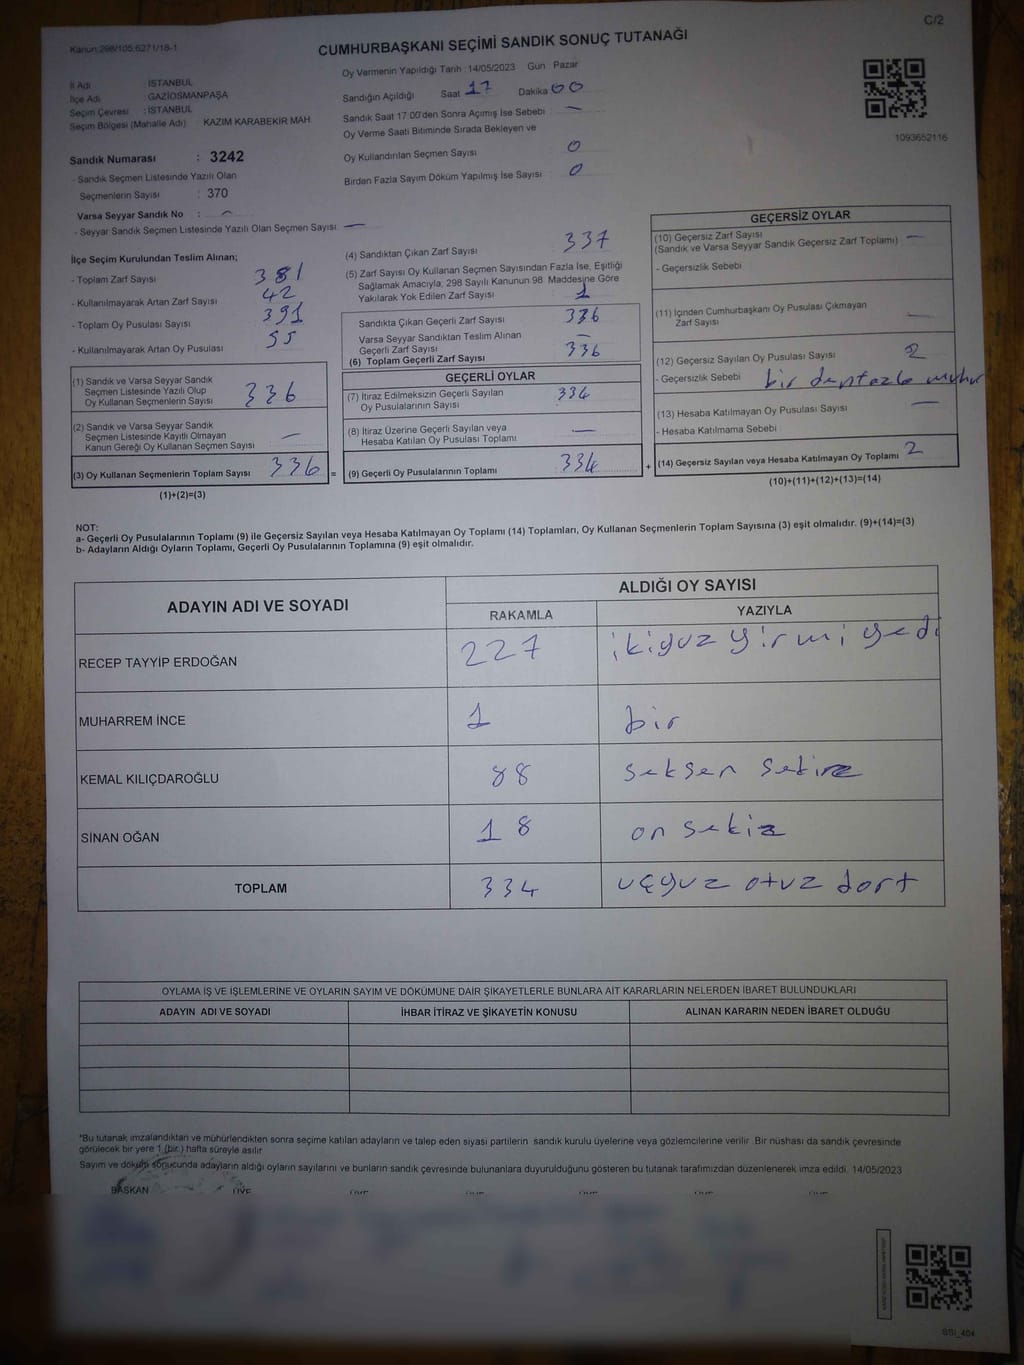 C/2
Kanun:298/105,6271/18-1
CUMHURBAŞKANI SEÇİMİ SANDIK SONUÇ TUTANAĞI
İl Adı : İSTANBUL
İlçe Adı : GAZİOSMANPAŞA
Seçim Çevresi : İSTANBUL
Seçim Bölgesi (Mahalle Adı) KAZIM KARABEKİR MAH
Sandık Numarası : 3242
- Sandık Seçmen Listesinde Yazılı Olan
Seçmenlerin Sayısı : 370
Varsa Seyyar Sandık No : -
- Seyyar Sandık Seçmen Listesinde Yazılı Olan Seçmen Sayısı: —
Oy Vermenin Yapıldığı Tarih : 14/05/2023 Gün : Pazar
Sandığın Açıldığı Saat 17 Dakika 00
Sandık Saat 17.00'den Sonra Açılmış İse Sebebi —
Oy Verme Saati Bitiminde Sırada Bekleyen ve
Oy Kullandırılan Seçmen Sayısı 0
Birden Fazla Sayım Döküm Yapılmış İse Sayısı 0
1093652116
İlçe Seçim Kurulundan Teslim Alınan;
- Toplam Zarf Sayısı 381
- Kullanılmayarak Artan Zarf Sayısı 42
- Toplam Oy Pusulası Sayısı 391
- Kullanılmayarak Artan Oy Pusulası 55
(1) Sandık ve Varsa Seyyar Sandık
Seçmen Listesinde Yazılı Olup
Oy Kullanan Seçmenlerin Sayısı 336
(2) Sandık ve Varsa Seyyar Sandık
Seçmen Listesinde Kayıtlı Olmayan
Kanun Gereği Oy Kullanan Seçmen Sayısı —
(3) Oy Kullanan Seçmenlerin Toplam Sayısı 336 =
(1)+(2)=(3)
(4) Sandıktan Çıkan Zarf Sayısı 337
(5) Zarf Sayısı Oy Kullanan Seçmen Sayısından Fazla İse, Eşitliği
Sağlamak Amacıyla; 298 Sayılı Kanunun 98. Maddesine Göre
Yakılarak Yok Edilen Zarf Sayısı 1
Sandıkta Çıkan Geçerli Zarf Sayısı 336
Varsa Seyyar Sandıktan Teslim Alınan
Geçerli Zarf Sayısı —
(6) Toplam Geçerli Zarf Sayısı 336
GEÇERLİ OYLAR
(7) İtiraz Edilmeksizin Geçerli Sayılan
Oy Pusulalarının Sayısı 334
(8) İtiraz Üzerine Geçerli Sayılan veya
Hesaba Katılan Oy Pusulası Toplamı —
(9) Geçerli Oy Pusulalarının Toplamı 334 +
GEÇERSİZ OYLAR
(10) Geçersiz Zarf Sayısı
(Sandık ve Varsa Seyyar Sandık Geçersiz Zarf Toplamı) —
- Geçersizlik Sebebi
(11) İçinden Cumhurbaşkanı Oy Pusulası Çıkmayan
Zarf Sayısı —
(12) Geçersiz Sayılan Oy Pusulası Sayısı 2
- Geçersizlik Sebebi bir
(13) Hesaba Katılmayan Oy Pusulası Sayısı —
- Hesaba Katılmama Sebebi :
(14) Geçersiz Sayılan veya Hesaba Katılmayan Oy Toplamı 2
(10)+(11)+(12)+(13)=(14)
NOT:
a- Geçerli Oy Pusulalarının Toplamı (9) ile Geçersiz Sayılan veya Hesaba Katılmayan Oy Toplamı (14) Toplamları, Oy Kullanan Seçmenlerin Toplam Sayısına (3) eşit olmalıdır. (9)+(14)=(3)
b- Adayların Aldığı Oyların Toplamı, Geçerli Oy Pusulalarının Toplamına (9) eşit olmalıdır.
ADAYIN ADI VE SOYADI ALDIĞI OY SAYISI
RAKAMLA YAZIYLA
RECEP TAYYİP ERDOĞAN 227 ikiyuz yirmi yedi
MUHARREM İNCE 1 bir
KEMAL KILIÇDAROĞLU 88 seksen sekiz
SİNAN OĞAN 18 on sekiz
TOPLAM 334 uçyuz otuz dort
OYLAMA İŞ VE İŞLEMLERİNE VE OYLARIN SAYIM VE DÖKÜMÜNE DAİR ŞİKAYETLERLE BUNLARA AİT KARARLARIN NELERDEN İBARET BULUNDUKLARI
ADAYIN ADI VE SOYADI İHBAR İTİRAZ VE ŞİKAYETİN KONUSU ALINAN KARARIN NEDEN İBARET OLDUĞU
*Bu tutanak imzalandıktan ve mühürlendikten sonra seçime katılan adayların ve talep eden siyasi partilerin sandık kurulu üyelerine veya gözlemcilerine verilir. Bir nüshası da sandık çevresinde
görülecek bir yere 1 (bir) hafta süreyle asılır.
Sayım ve döküm sonucunda adayların aldığı oyların sayılarını ve bunların sandık çevresinde bulunanlara duyurulduğunu gösteren bu tutanak tarafımızdan düzenlenerek imza edildi. 14/05/2023
BAŞKAN
SSI_404